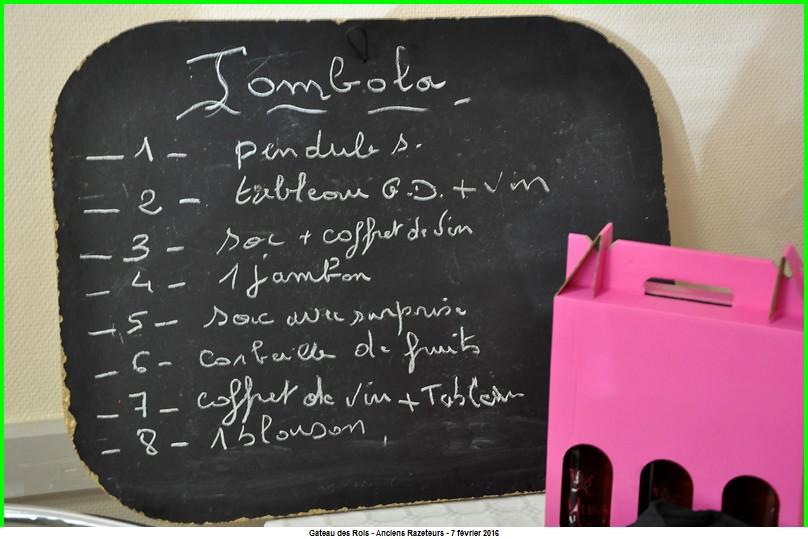 Tombola
1 - pendule s.
2 - tableau G.D. + vin
3 - sac + coffret de vin
4 - 1 jambon
5 - sac avec surprise
6 - corbeille de fruits
7 - coffret de vin + Tableau
8 - 1 blouson
Gateau des Rois - Anciens Razeteurs - 7 février 2016